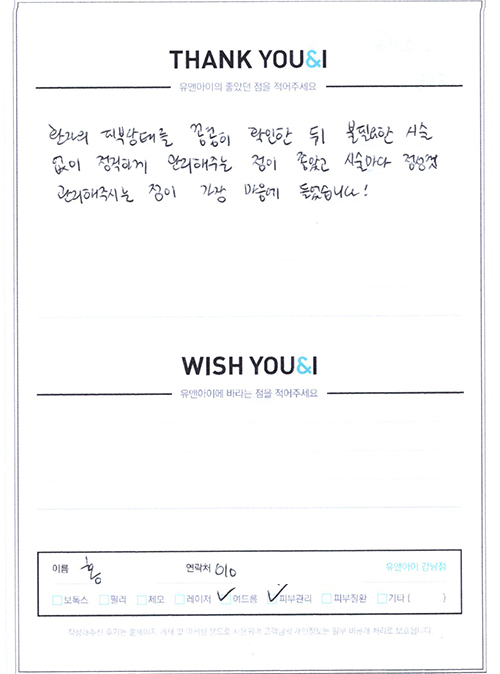 THANK YOU&I
유앤아이의 좋았던 점을 적어주세요
환자의 피부상태를 꼼꼼히 확인한 뒤 불필요한 시술
없이 정직하게 관리해주는 점이 좋았고 시술마다 정성껏
관리해주시는 점이 가장 마음에 들었습니다!
WISH YOU&I
유앤아이에 바라는 점을 적어주세요
이름 홍 연락처 010 유앤아이 강남점
보톡스 필러 제모 레이저 여드름 피부관리 피부질환 기타 ( )
작성해주신 후기는 홈페이지 게재 및 마케팅 용도로 사용되며 고객님의 개인정보는 일부 비공개 처리로 보호됩니다.